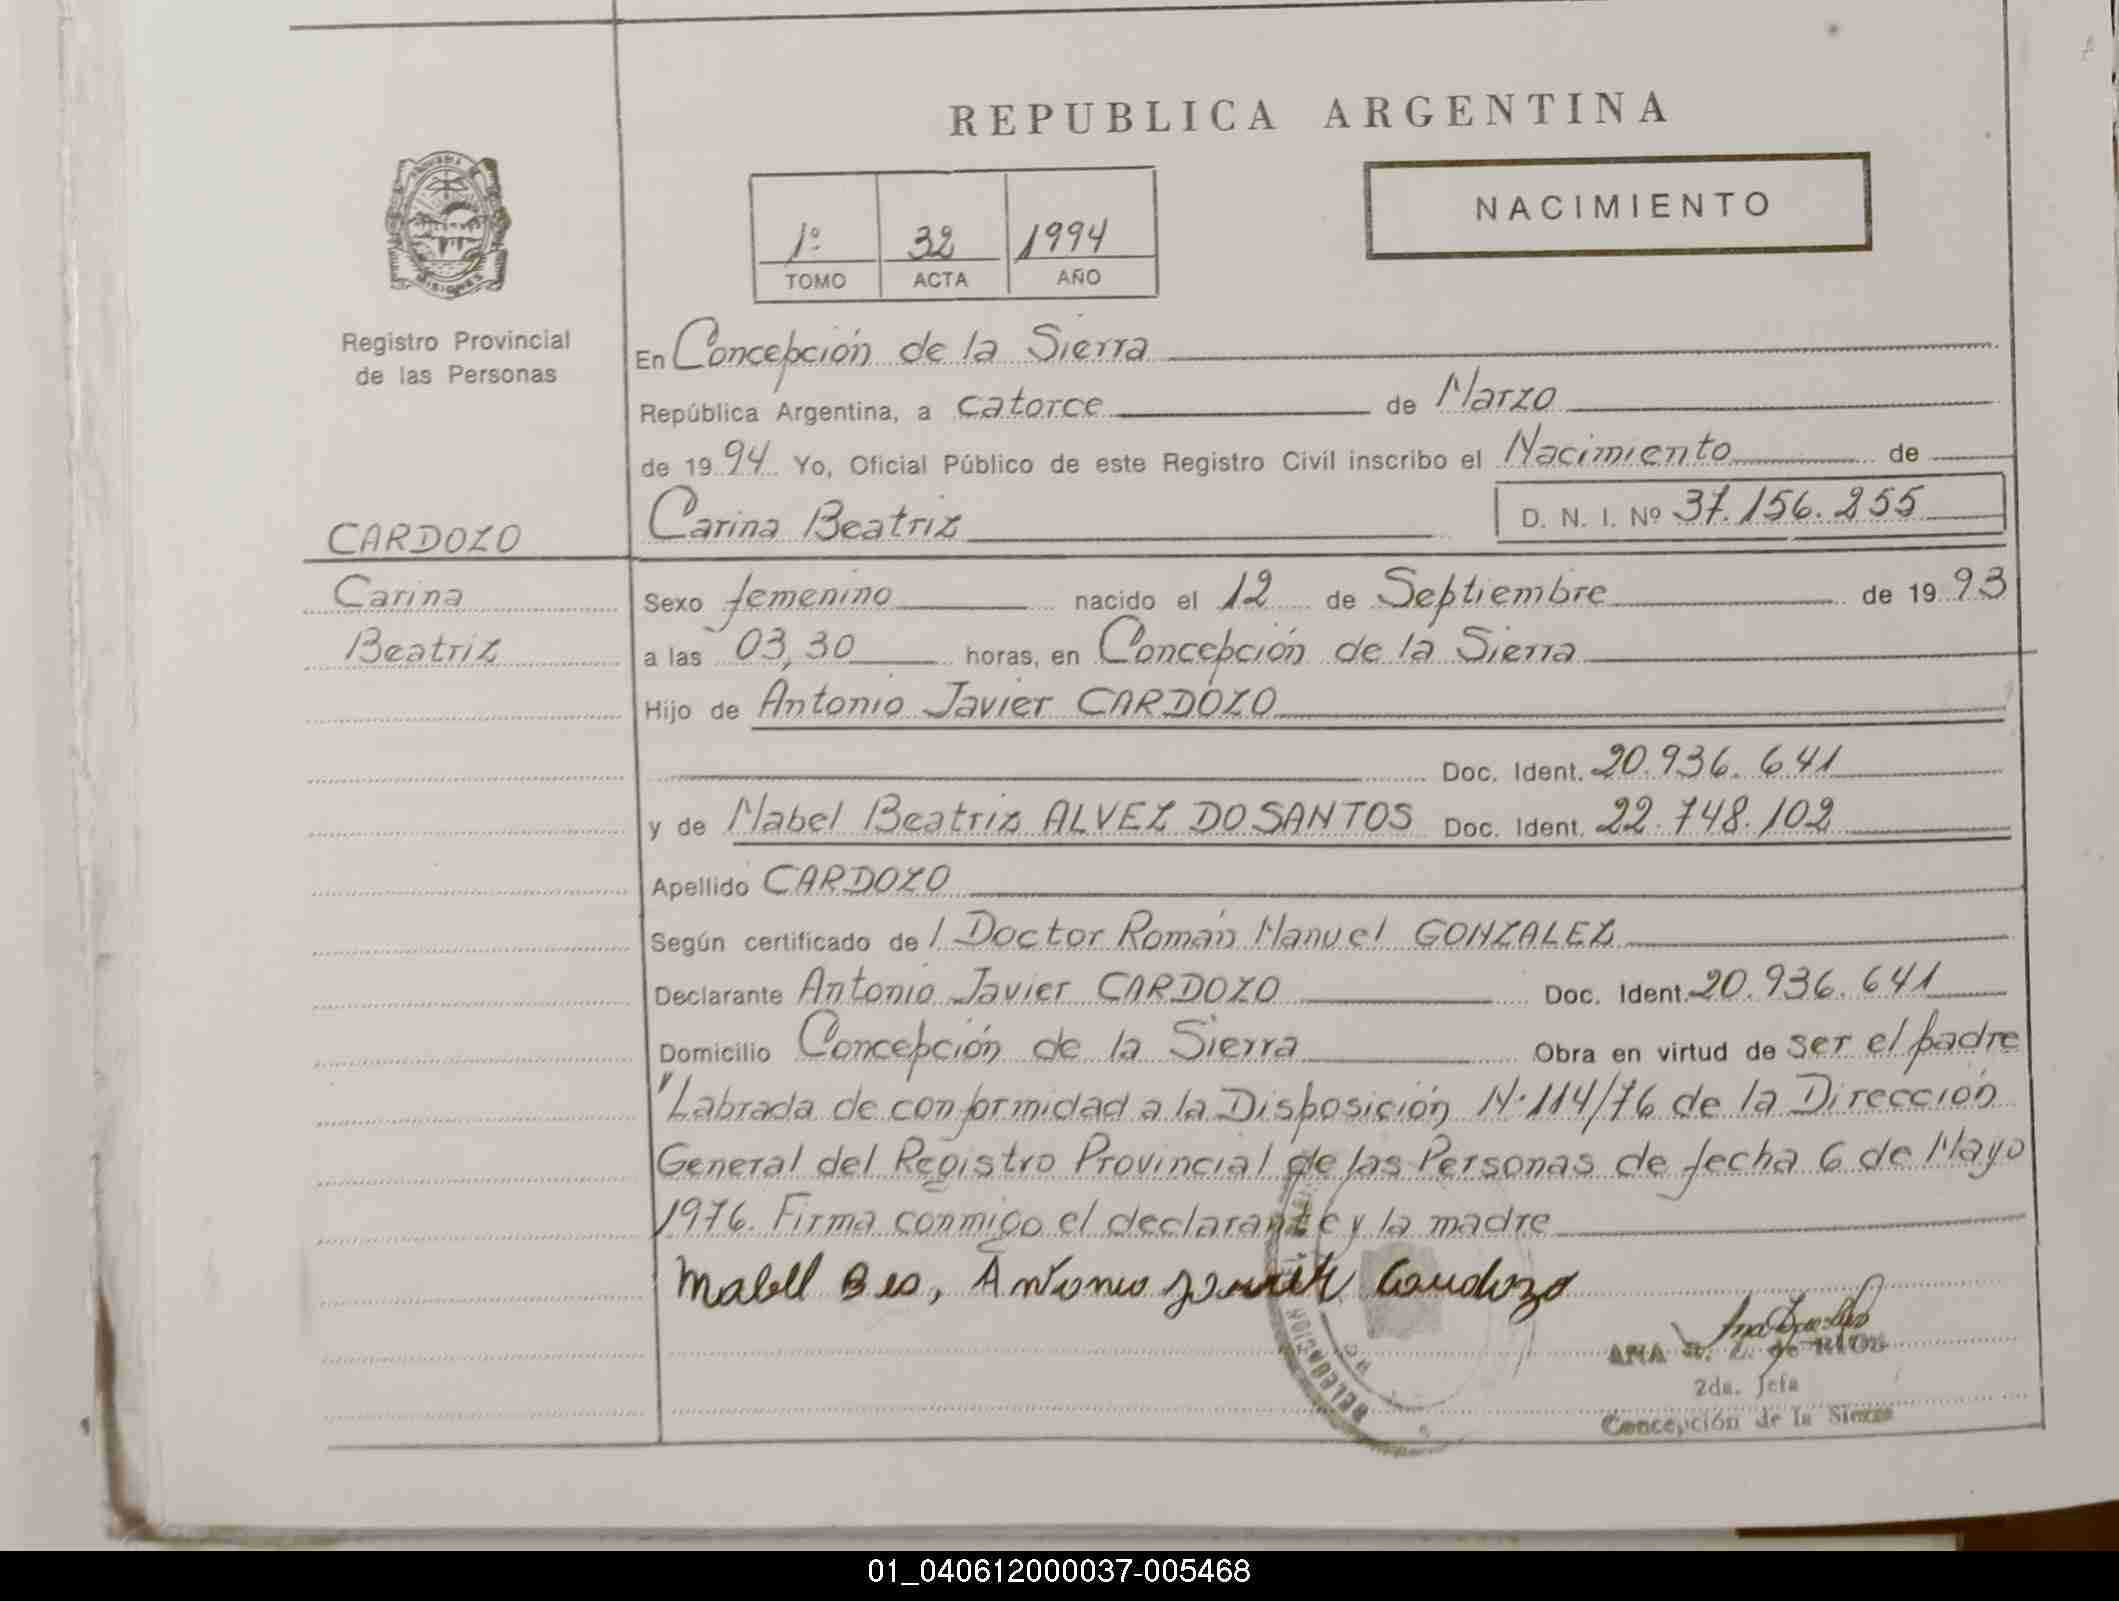 REPUBLICA ARGENTINA
NACIMIENTO
1º 32 1994
TOMO ACTA AÑO
MISIONES
Registro Provincial
de las Personas
En Concepción de la Sierra
República Argentina, a catorce de Marzo
de 1994 Yo, Oficial Público de este Registro Civil inscribo el Nacimiento de
Carina Beatriz D. N. I. Nº 37.156.255
CARDOZO
Carina
Beatriz
Sexo femenino nacido el 12 de Septiembre de 1993
a las 03,30 horas, en Concepción de la Sierra
Hijo de Antonio Javier CARDOZO
Doc. Ident. 20.936.641
y de Mabel Beatriz ALVEZ DO SANTOS Doc. Ident. 22.748.102
Apellido CARDOZO
Según certificado de l Doctor Román Manuel GONZALEZ
Declarante Antonio Javier CARDOZO Doc. Ident. 20.936.641
Domicilio Concepción de la Sierra Obra en virtud de ser el padre
"Labrada de conformidad a la Disposición N·114/76 de la Dirección
General del Registro Provincial de las Personas de fecha 6 de Mayo
1976. Firma conmigo el declarante y la madre
Mabell Bea, Antonio Javier Cardozo
DELEGACION
ANA de RIOS
2da. Jefa
Concepción de la Sierra
01_040612000037-005468